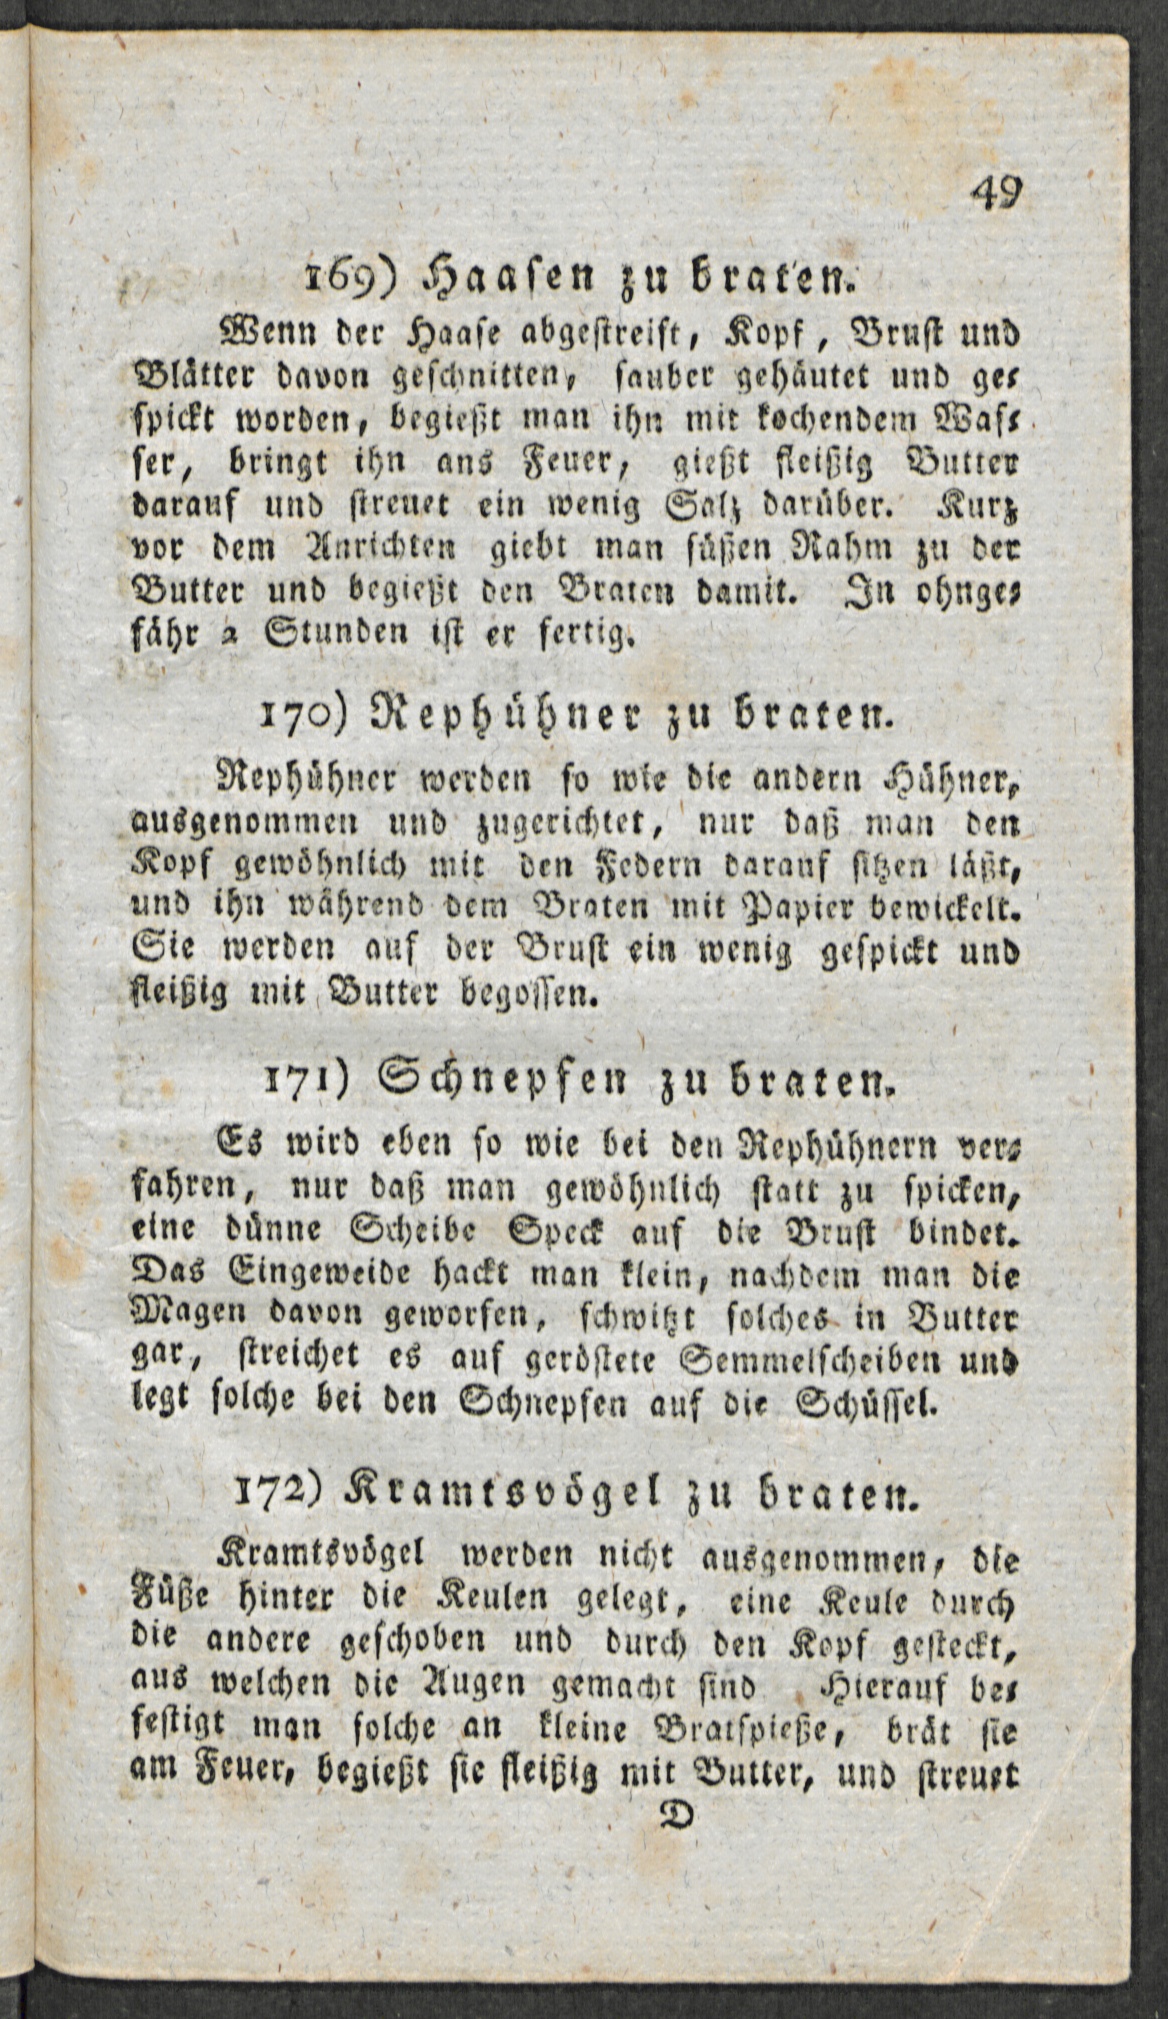 49
169) Haasen zu braten.
Wenn der Haase abgestreift, Kopf, Brust und
Blätter davon geschnitten, sauber gehäutet und ge-
spickt worden, begießt man ihn mit kochendem Was-
ser, bringt ihn ans Feuer, gießt fleißig Butter
darauf und streuet ein wenig Salz darüber. Kurz
vor dem Anrichten giebt man süßen Rahm zu der
Butter und begießt den Braten damit. In ohnge-
fähr 2 Stunden ist er fertig.
170) Rephühner zu braten.
Rephühner werden so wie die andern Hühner,
ausgenommen und zugerichtet, nur daß man den
Kopf gewöhnlich mit den Federn darauf sitzen läßt,
und ihn während dem Braten mit Papier bewickelt.
Sie werden auf der Brust ein wenig gespickt und
fleißig mit Butter begossen.
171) Schnepfen zu braten.
Es wird eben so wie bei den Rephühnern ver-
fahren, nur daß man gewöhnlich statt zu spicken,
eine dünne Scheibe Speck auf die Brust bindet.
Das Eingeweide hackt man klein, nachdem man die
Magen davon geworfen, schwitzt solches in Butter
gar, streichet es auf geröstete Semmelscheiben und
legt solche bei den Schnepfen auf die Schüssel.
172) Kramtsvögel zu braten.
Kramtsvögel werden nicht ausgenommen, die
Füße hinter die Keulen gelegt, eine Keule durch
die andere geschoben und durch den Kopf gesteckt,
aus welchen die Augen gemacht sind. Hierauf be-
festigt man solche an kleine Bratspieße, brät sie
am Feuer, begießt sie fleißig mit Butter, und streuet
D